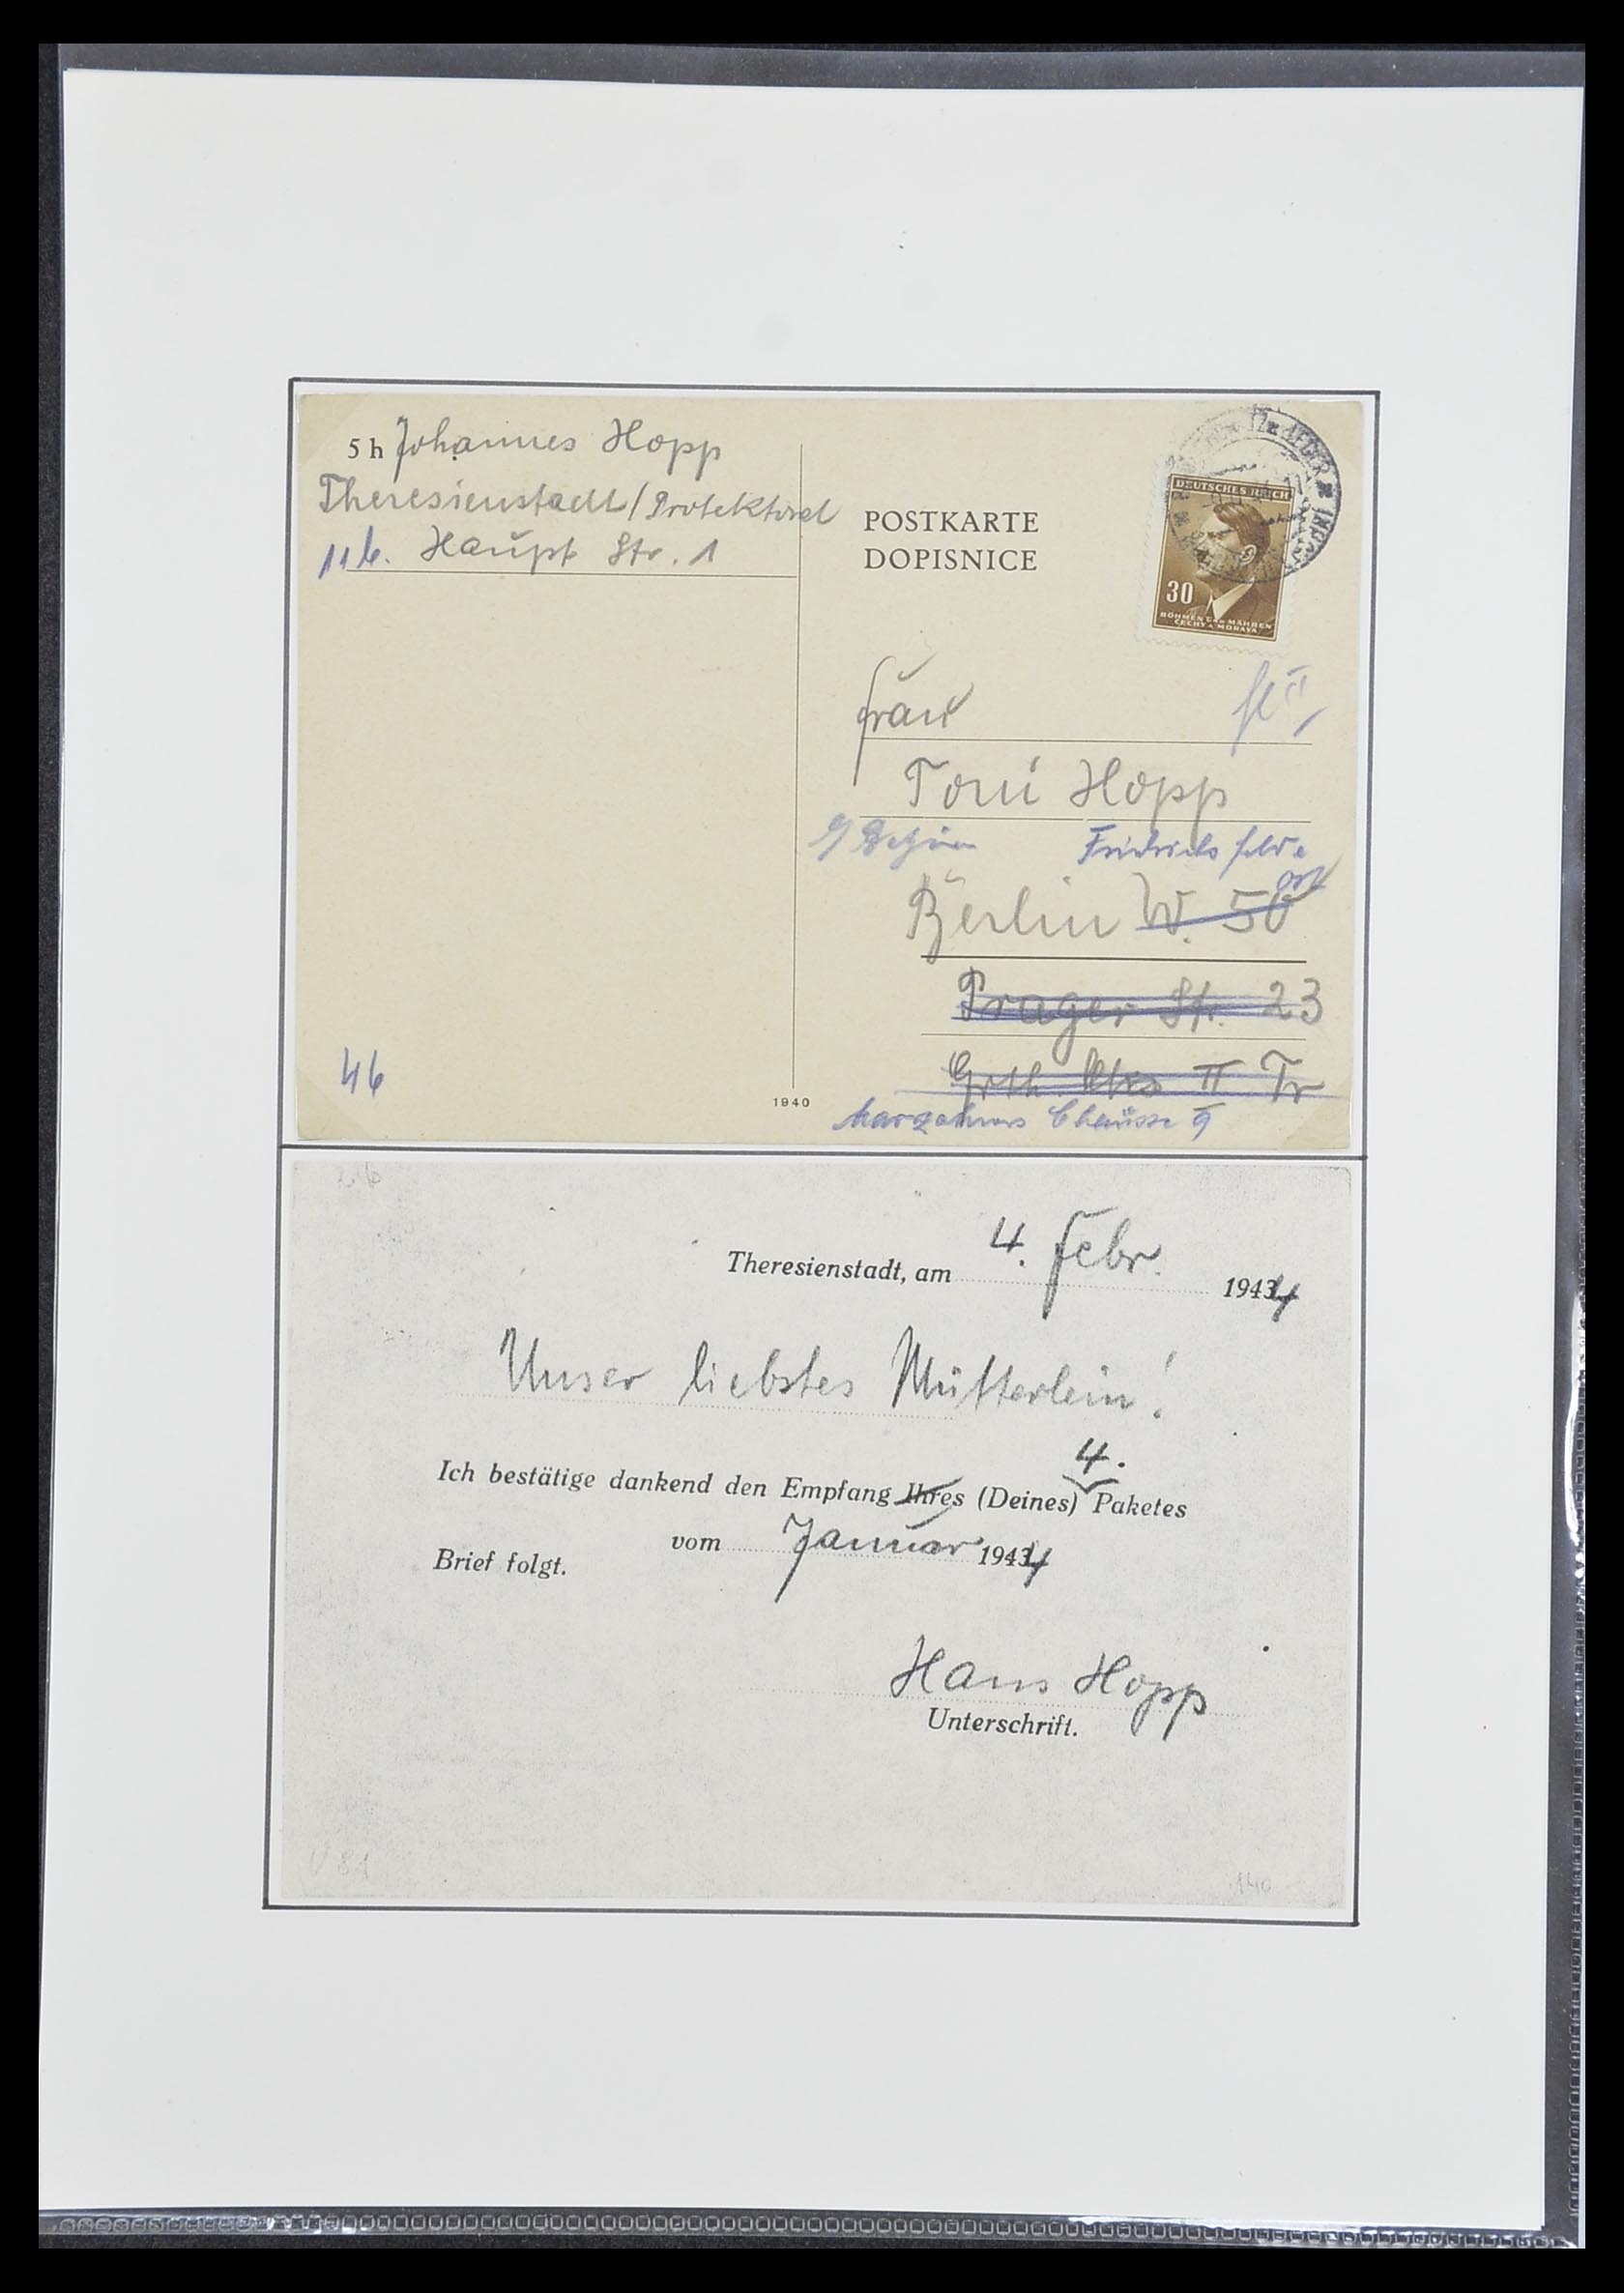 5 h Johannes Hopp
Theresienstadt / Protektorat
11b. Haupt Str. 1
POSTKARTE
DOPISNICE
DEUTSCHES REICH
30
BÖHMEN UND MÄHREN
ČECHY A MORAVA
Frau
Toni Hopp
Friedrichsfelde
ost
Berlin W. 50
Prager Str. 23
Grth. II Tr
Marzahner Chaussee 9
46
1940
Theresienstadt, am 4. Febr. 1943 4
Unser liebstes Mütterlein!
4.
Ich bestätige dankend den Empfang Ihres (Deines) Paketes
vom Januar 1943 4
Brief folgt.
Hans Hopp
Unterschrift.